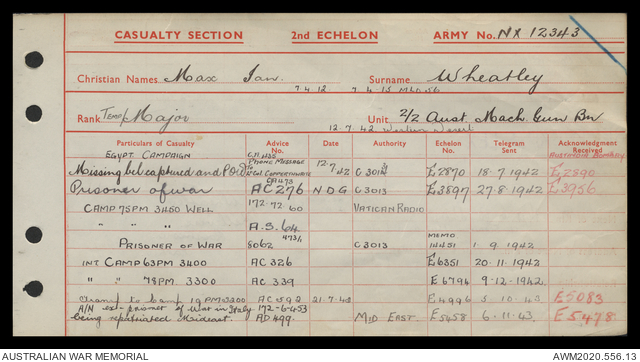 CASUALTY SECTION 2nd ECHELON ARMY No. NX 12343
Christian Names Max Ian Surname Wheatley
7.4.12
Rank Temp/Major Unit 2/2 Aust Mach. Gun Bn
12.7.42 Western Desert
Particulars of Casualty Advice No. Date Authority Echelon No. Telegram Sent Acknowledgment Received
EGYPT CAMPAIGN PHONE MESSAGE Australia Bombay
Missing bel captured and POW 12.7.42 E2870 18.7.1942 E2890
CA473
Prisoner of war AC276 NDG C3013 E3897 27.8.1942 E3956
CAMP 75PM 3450 WELL 172.72 60 VATICAN RADIO
" " " A.S.64
PRISONER OF WAR 8062 473/1 C3013 MEMO 14451 1.9.1942
INT CAMP 63PM 3400 AC326 E6351 20.11.1942
" " 78PM 3300 AC339 E6794 9-12-1942
to Camp 19PM3200 AC592 21.7.43 E4996 5.10.43 E5083
A/N ex-prisoner of war in Italy 172-6-453
being repatriated Mideast. AD499. MID EAST. E5458 6.11.43. E5478
AUSTRALIAN WAR MEMORIAL AWM2020.556.13